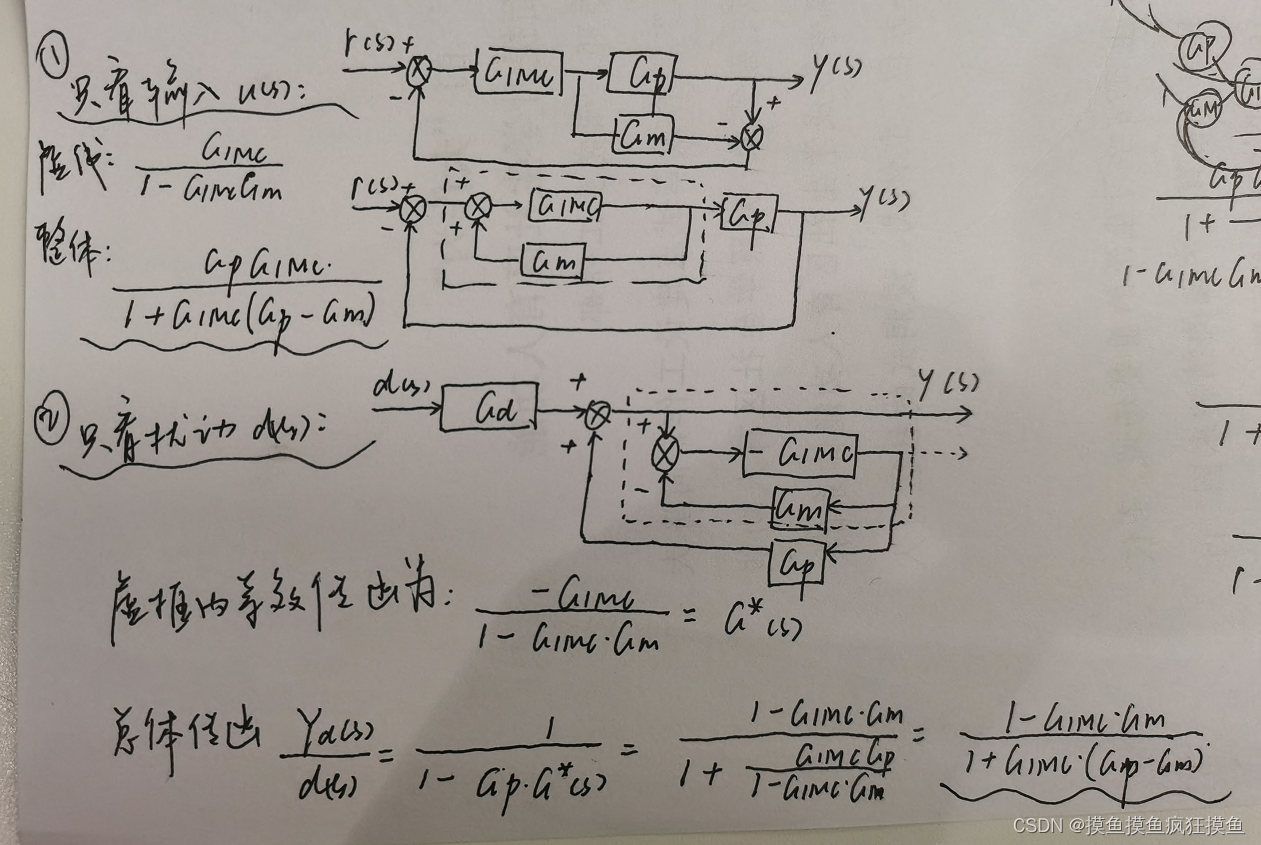 ① 只看输入 u(s):
r(s) + - GIMC Gp y(s) + - Gm
虚线: GIMC / 1 - GIMC Gm
r(s) + - + + GIMC Gm Gp y(s)
整体: Gp GIMC. / 1 + GIMC (Gp - Gm)
② 只看扰动 d(s):
d(s) Gd + + y(s)
+ - - GIMC
Gm
Gp
虚框内等效传函为: -GIMC / 1 - GIMC·Gm = G*(s)
总体传函 Yd(s) / d(s) = 1 / 1 - Gp·G*(s) = 1 - GIMC·Gm / 1 + GIMC Gp / 1 - GIMC·Gm = 1 - GIMC·Gm / 1 + GIMC·(Gp - Gm)
Gp
GM
1 +
1 - GIMC Gm
1 +
1 -
CSDN @摸鱼摸鱼疯狂摸鱼